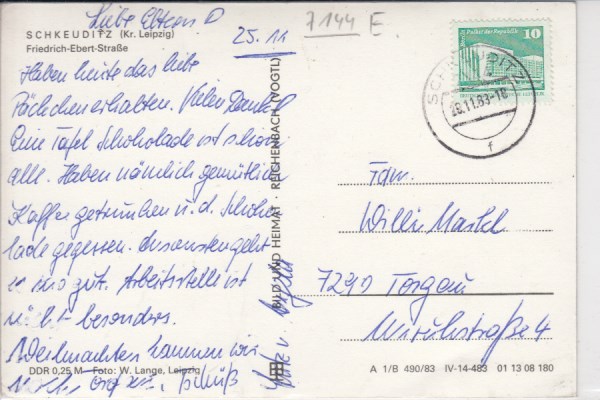 Liebe Eltern
7144 E.
SCHKEUDITZ (Kr. Leipzig)
Friedrich-Ebert-Straße
25.11
Haben heute das liebe
Päckchen erhalten. Vielen Dank!
Eine Tafel Schokolade ist schon
alle. Haben nämlich gemütlich
Kaffee getrunken u. d. Schoko
lade gegessen. Ansonsten geht
es uns gut. Arbeitsstelle ist
nicht besonders.
Weihnachten kommen wir
nach Torgau. Tschüß
DDR 0,25 M Foto: W. Lange, Leipzig
BILD UND HEIMAT · REICHENBACH (VOGTL)
Palast der Republik
10
SCHKEUDITZ
28.11.83-18
f
Fam.
Willi
7290 Torgau
4
A 1/B 490/83 IV-14-483 01 13 08 180